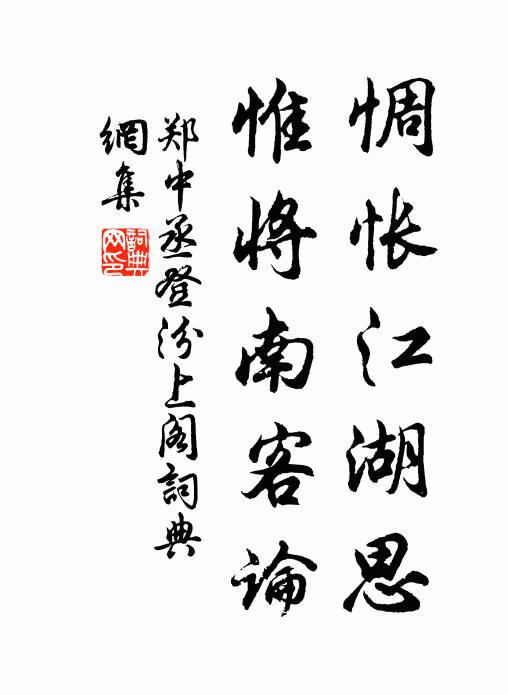 惆怅江湖思
惟将南客论
郑中丞登汾上阁詞典
網集
詞典
网印